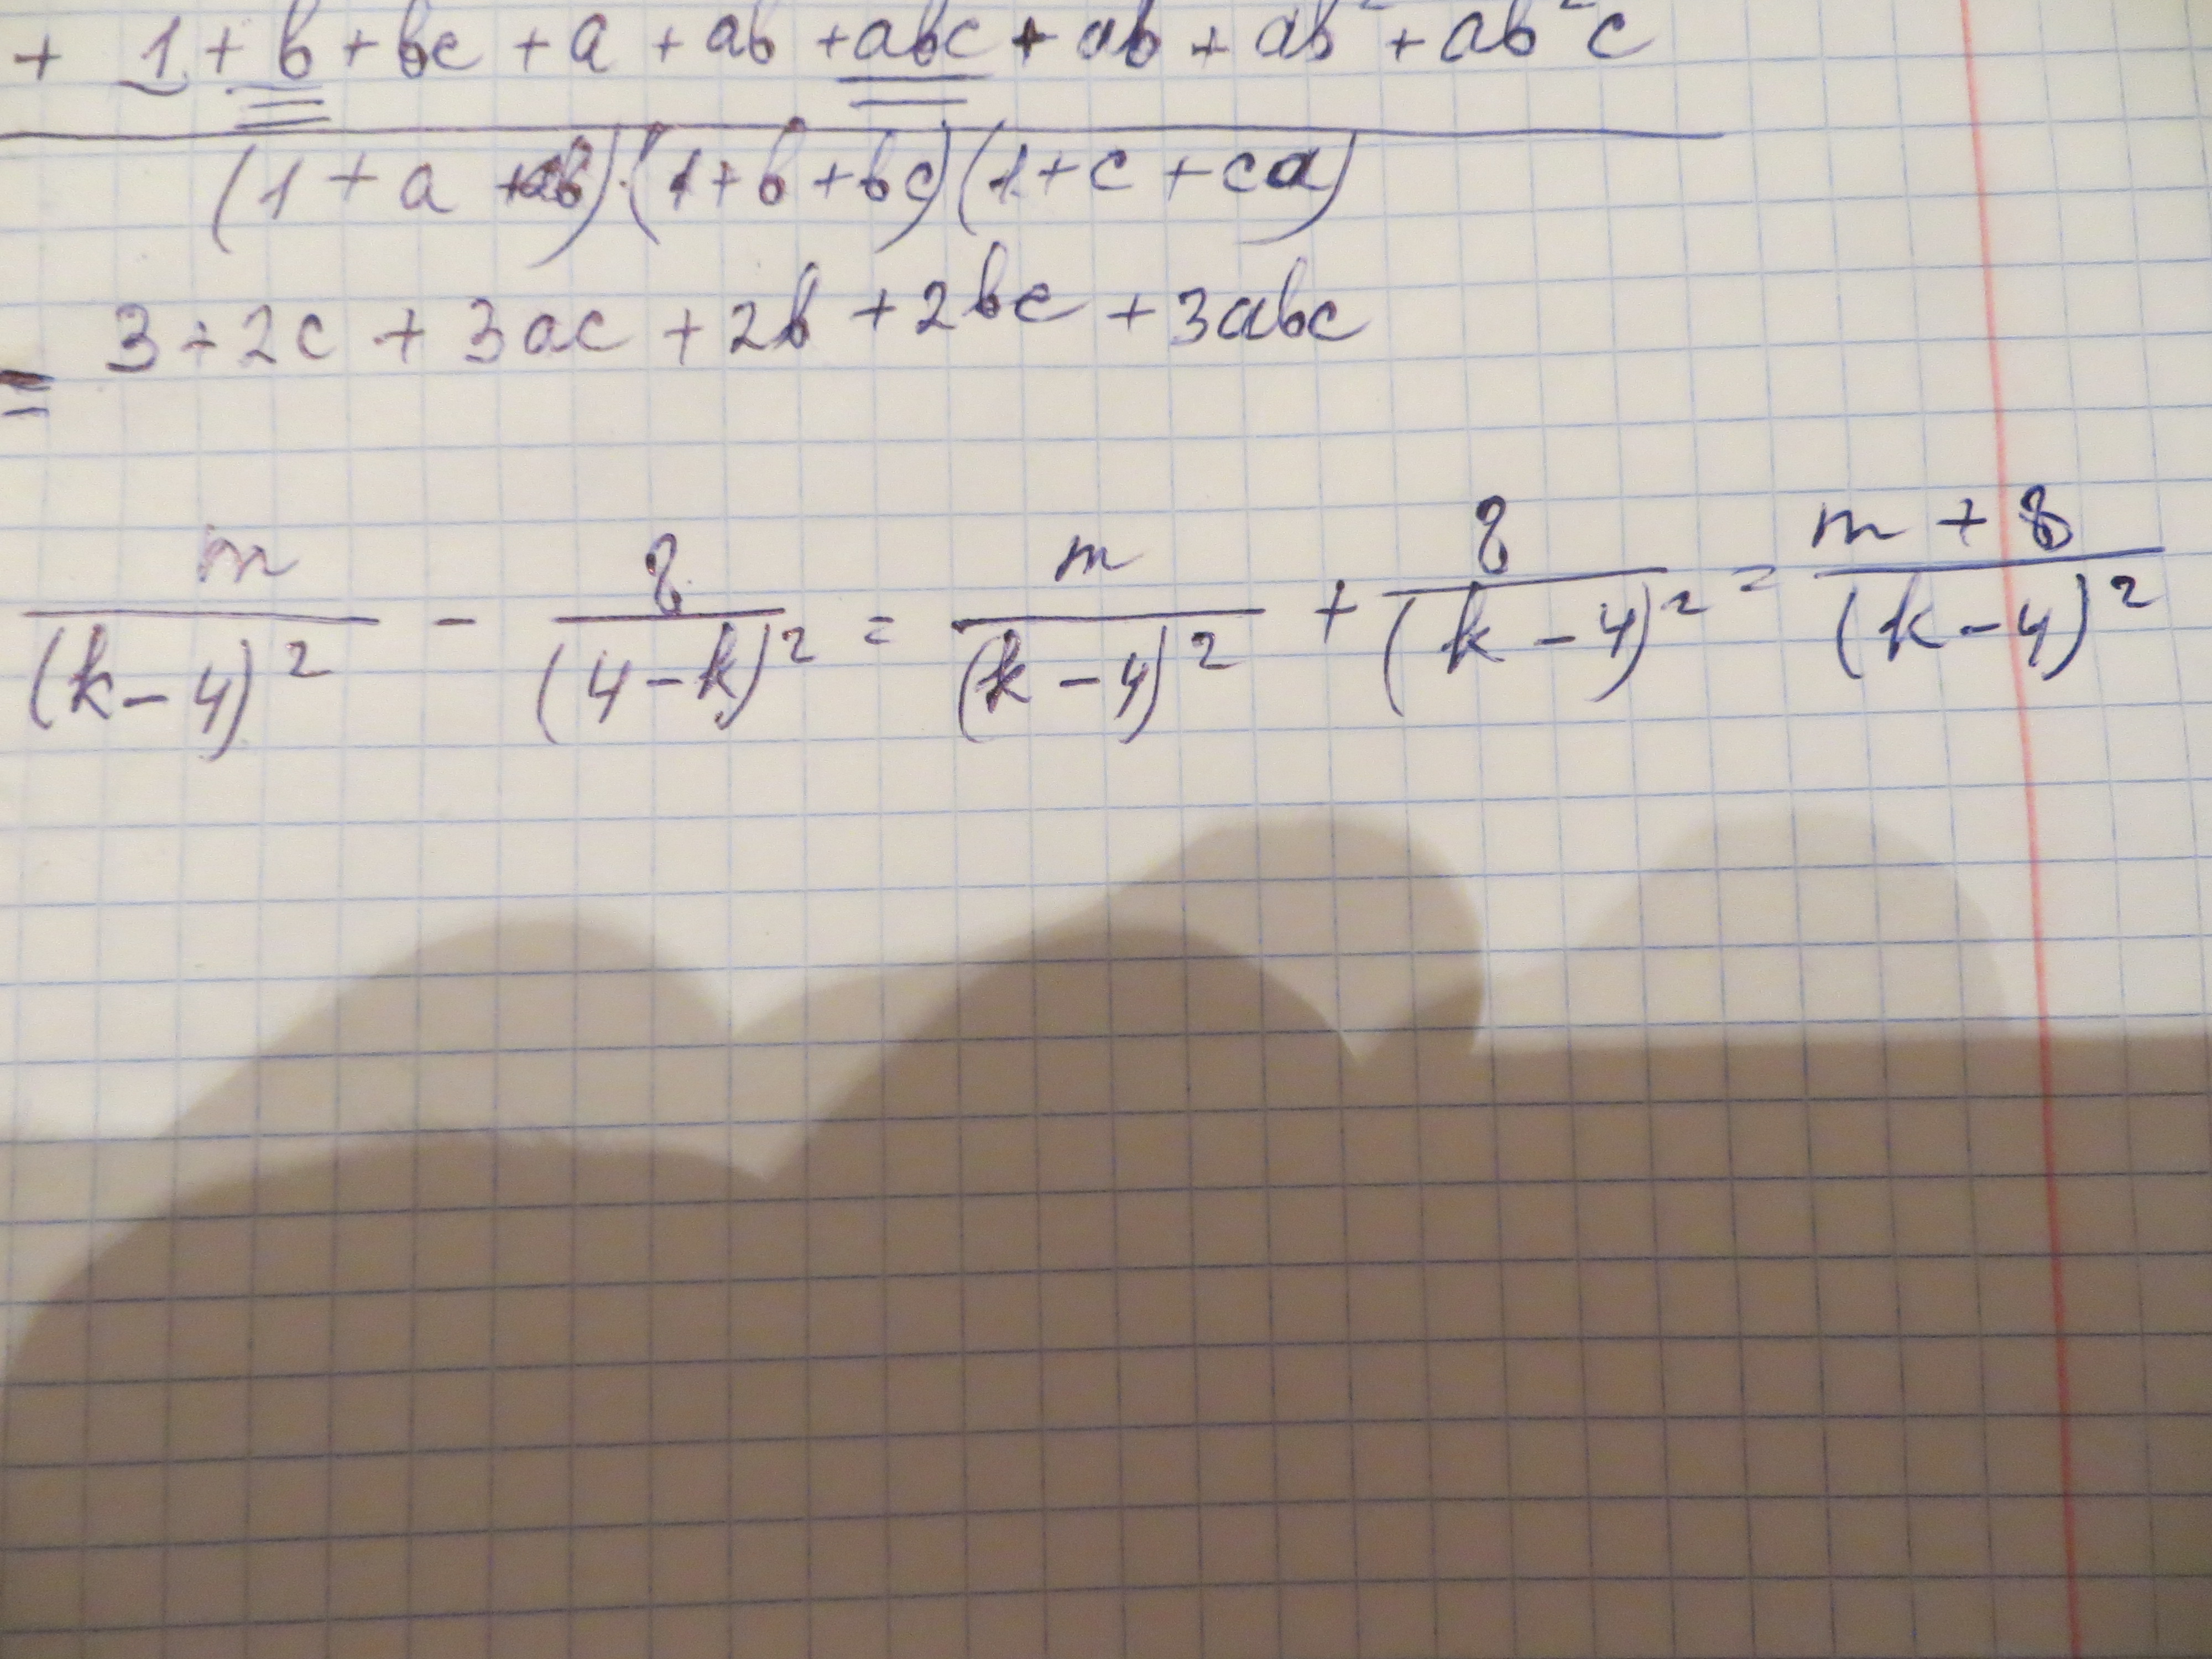 + 1 + b + bc + a + ab + abc + ab + ab² + ab²c
(1 + a + ab) · (1 + b + bc)(1 + c + ca)
= 3 + 2c + 3ac + 2b + 2bc + 3abc
m/(k - 4)² - 8/(4 - k)² = m/(k - 4)² + 8/(k - 4)² = (m + 8)/(k - 4)²